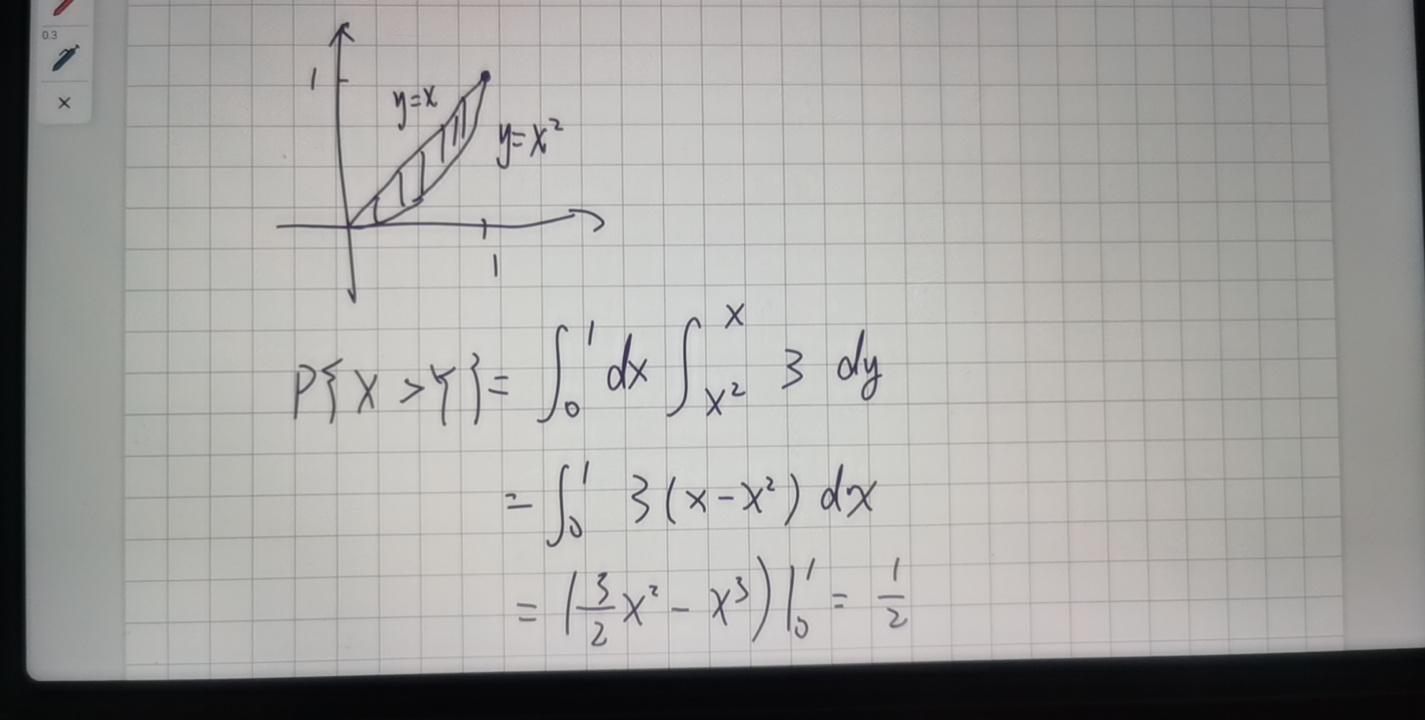 0.3
×
1
y=x
y=x²
1
P{X>Y}= ∫₀¹ dx ∫_{x²}^{x} 3 dy
= ∫₀¹ 3(x-x²) dx
= (3/2 x² - x³)|₀¹ = 1/2